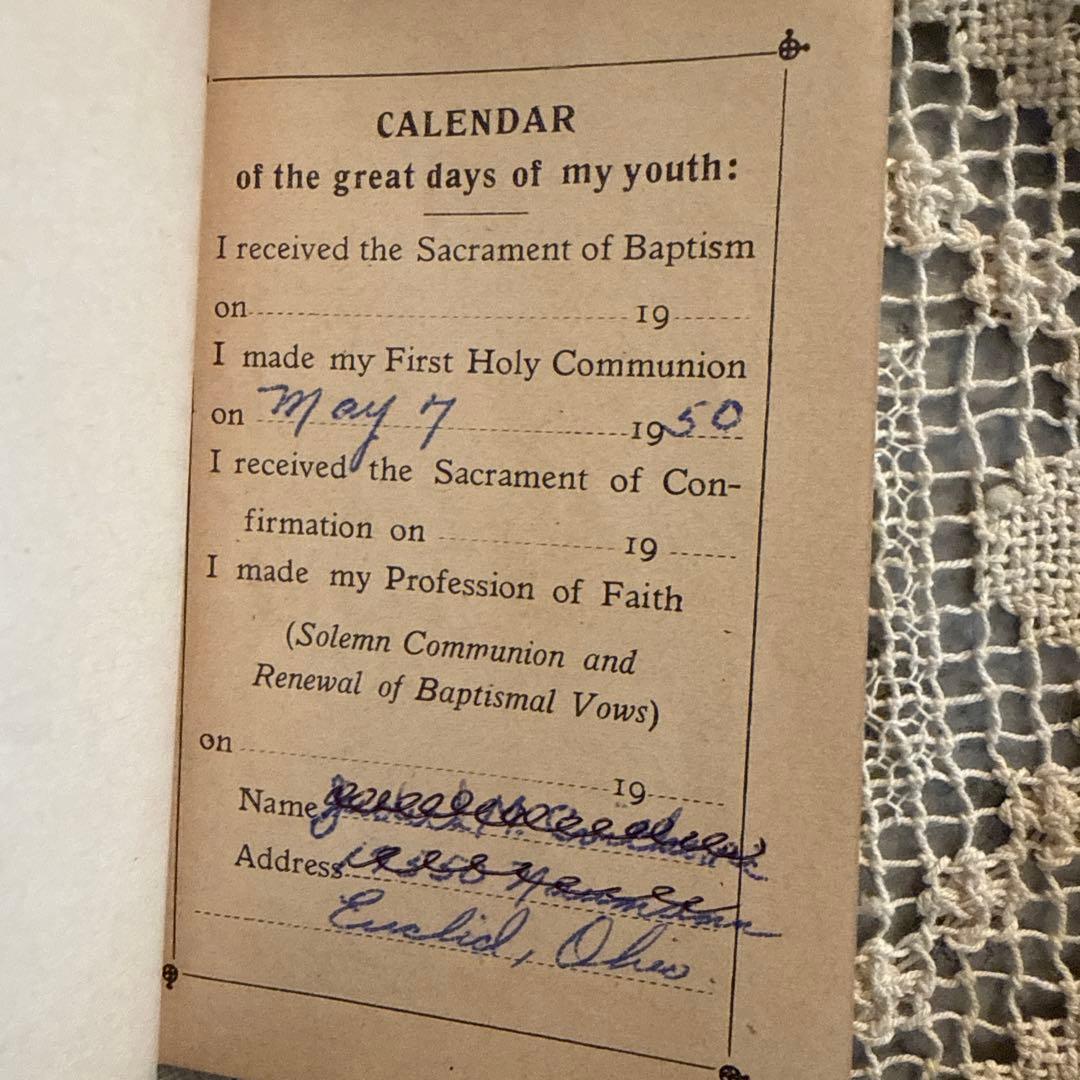 CALENDAR
of the great days of my youth:
I received the Sacrament of Baptism
on 19
I made my First Holy Communion
on May 7 1950
I received the Sacrament of Con-
firmation on 19
I made my Profession of Faith
(Solemn Communion and
Renewal of Baptismal Vows)
on 19
Name
Address
Euclid, Ohio